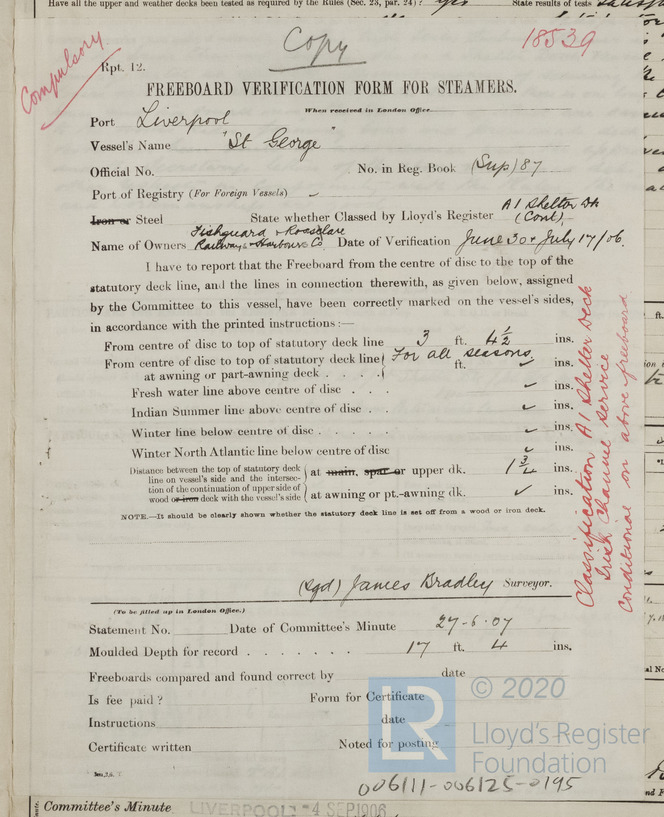 Have all the upper and weather decks been tested as required by the Rules (Sec. 23, par. 24)? yes State results of tests
Copy
18539
Compulsory.
Rpt. 12.
FREEBOARD VERIFICATION FORM FOR STEAMERS.
When received in London Office
Port Liverpool
Vessel's Name "St George"
Official No. No. in Reg. Book (Sup) 87
Port of Registry (For Foreign Vessels) ✓
Iron or Steel State whether Classed by Lloyd's Register A1 Shelter Dk (Cont)
Name of Owners Fishguard & Rosslare Railways & Harbours Co Date of Verification June 30 & July 17/06.
I have to report that the Freeboard from the centre of disc to the top of the
statutory deck line, and the lines in connection therewith, as given below, assigned
by the Committee to this vessel, have been correctly marked on the vessel's sides,
in accordance with the printed instructions:—
From centre of disc to top of statutory deck line 3 ft. 4½ ins.
From centre of disc to top of statutory deck line For all seasons.
at awning or part-awning deck . . . . ft. ✓ ins.
Fresh water line above centre of disc . . . ✓ ins.
Indian Summer line above centre of disc . . ✓ ins.
Winter line below centre of disc . . . . . ✓ ins.
Winter North Atlantic line below centre of disc ✓ ins.
Distance between the top of statutory deck
line on vessel's side and the intersec- at main, spar or upper dk. 1¾ ins.
tion of the continuation of upper side of
wood or iron deck with the vessel's side at awning or pt.-awning dk. ✓ ins.
NOTE.—It should be clearly shown whether the statutory deck line is set off from a wood or iron deck.
Classification A1 Shelter Deck
Irish Channel Service
Conditional on above freeboard
(Sgd) James Bradley Surveyor.
(To be filled up in London Office.)
Statement No. Date of Committee's Minute 27-6-07
Moulded Depth for record . . . . . . . 17 ft. 4 ins.
Freeboards compared and found correct by date
Is fee paid? Form for Certificate
Instructions date
Certificate written Noted for posting
© 2020
LR
Lloyd's Register
Foundation
006111-006125-0195
Committee's Minute LIVERPOOL -4 SEP. 1906